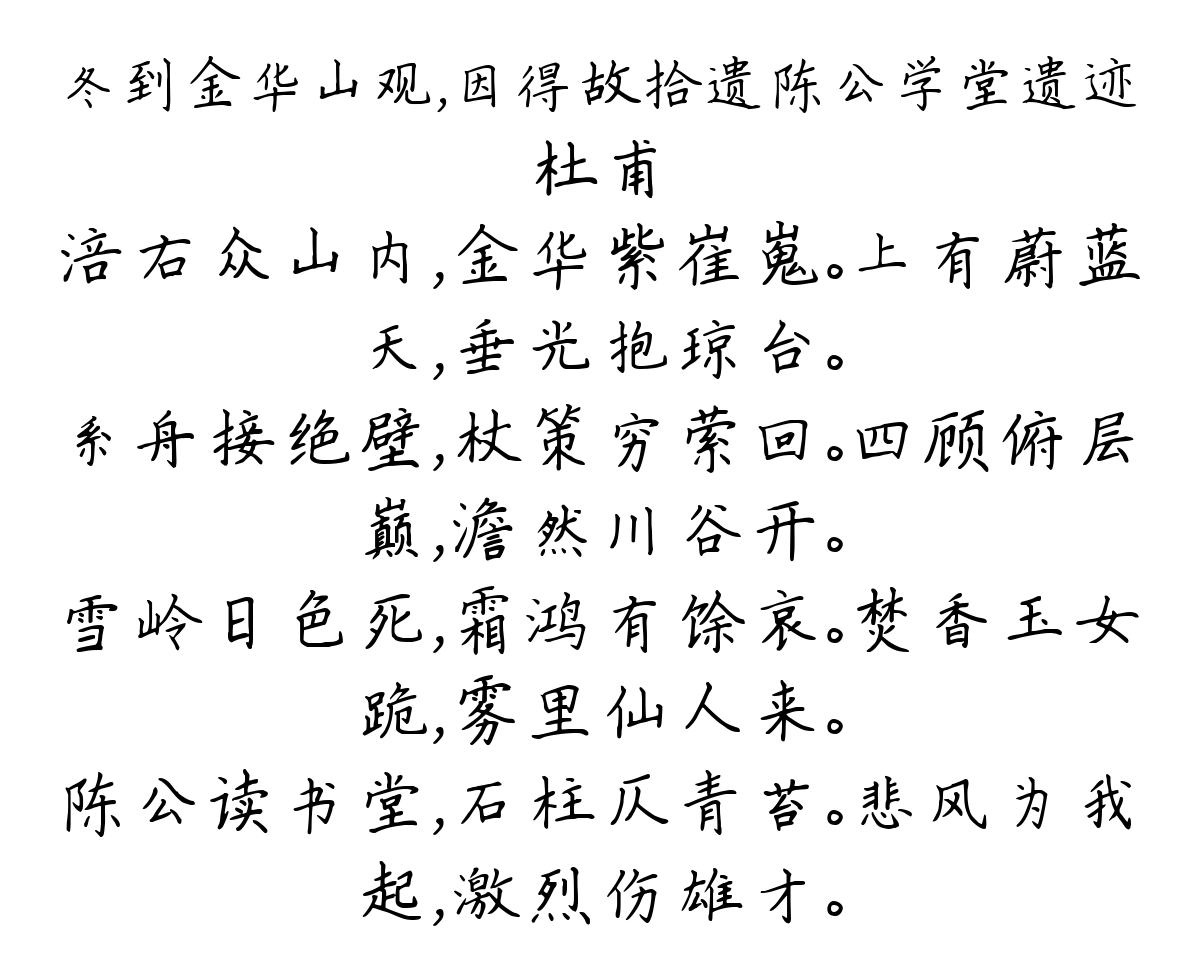 冬到金华山观,因得故拾遗陈公学堂遗迹
杜甫
涪右众山内,金华紫崔嵬。上有蔚蓝
天,垂光抱琼台。
系舟接绝壁,杖策穷萦回。四顾俯层
巅,澹然川谷开。
雪岭日色死,霜鸿有馀哀。焚香玉女
跪,雾里仙人来。
陈公读书堂,石柱仄青苔。悲风为我
起,激烈伤雄才。